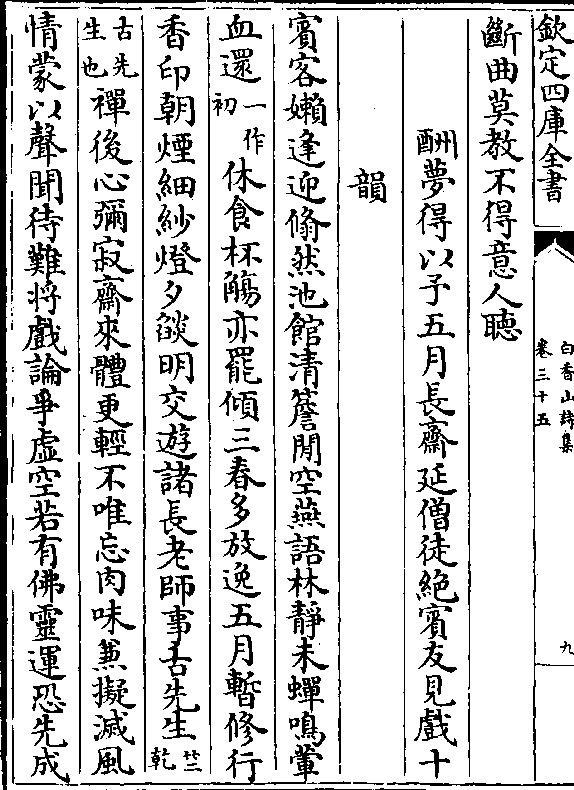 欽定四庫全書
白香山詩集
卷三十五
九
斷曲莫教不得意人聽
酬夢得以予五月長齋延僧徒絶賓友見戲十
韻
賓客嬾逢迎翛然池館清簷閒空燕語林靜未蟬鳴葷
血還一作初休食杯觴亦罷傾三春多放逸五月暫修行
香印朝煙細紗燈夕燄明交遊諸長老師事古先生竺乾
古先生也禪後心彌寂齋來體更輕不唯忘肉味兼擬滅風
情蒙以聲聞待難將戲論爭虛空若有佛靈運恐先成